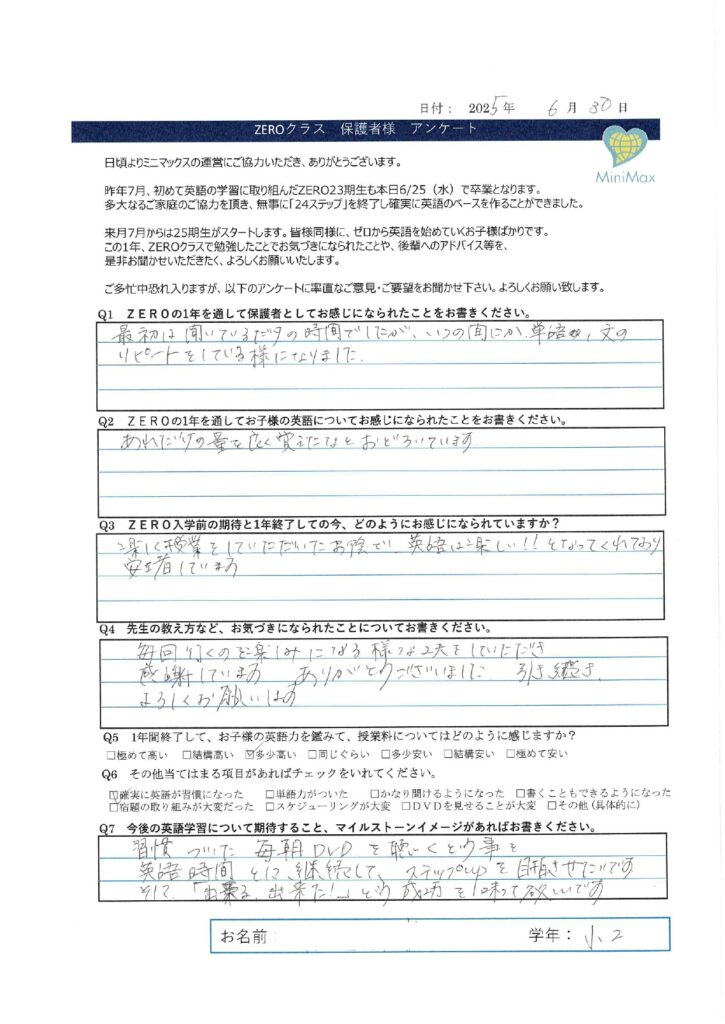 日付： 2025年 6月 30日
ZEROクラス 保護者様 アンケート
MiniMax
日頃よりミニマックスの運営にご協力いただき、ありがとうございます。
昨年7月、初めて英語の学習に取り組んだZERO23期生も本日6/25（水）で卒業となります。
多大なるご家庭のご協力を頂き、無事に「24ステップ」を終了し確実に英語のベースを作ることができました。
来月7月からは25期生がスタートします。皆様同様に、ゼロから英語を始めていくお子様ばかりです。
この1年、ZEROクラスで勉強したことでお気づきになられたことや、後輩へのアドバイス等を、
是非お聞かせいただきたく、よろしくお願いいたします。
ご多忙中恐れ入りますが、以下のアンケートに率直なご意見・ご要望をお聞かせ下さい。よろしくお願い致します。
Q1 ＺＥＲＯの1年を通して保護者としてお感じになられたことをお書きください。
最初は聞いているだけの時間でしたが、いつの間にか、単語、文の
リピートをしている様になりました。
Q2 ＺＥＲＯの1年を通してお子様の英語についてお感じになられたことをお書きください。
あれだけの量を良く覚えたなとおどろいています
Q3 ＺＥＲＯ入学前の期待と1年終了しての今、どのようにお感じになられていますか？
楽しく授業をしていただいたお陰で、英語は楽しい!!となってくれており
安堵しています
Q4 先生の教え方など、お気づきになられたことについてお書きください。
毎回行くのを楽しみになる様な工夫をしていただき
感謝しています ありがとうございました 引き続き、
よろしくお願いします
Q5 1年間終了して、お子様の英語力を鑑みて、授業料についてはどのように感じますか？
□極めて高い □結構高い ☑多少高い □同じぐらい □多少安い □結構安い □極めて安い
Q6 その他当てはまる項目があればチェックをいれてください。
☑確実に英語が習慣になった □単語力がついた □かなり聞けるようになった □書くこともできるようになった
□宿題の取り組みが大変だった □スケジューリングが大変 □ＤＶＤを見せることが大変 □その他（具体的に）
Q7 今後の英語学習について期待すること、マイルストーンイメージがあればお書きください。
習慣づいた毎朝DVDを聴くという事を
英語時間とに継続して、ステップupを目指させたいです
そして、「出来る、出来た!」という成功を味わって欲しいです
お名前
学年： 小2